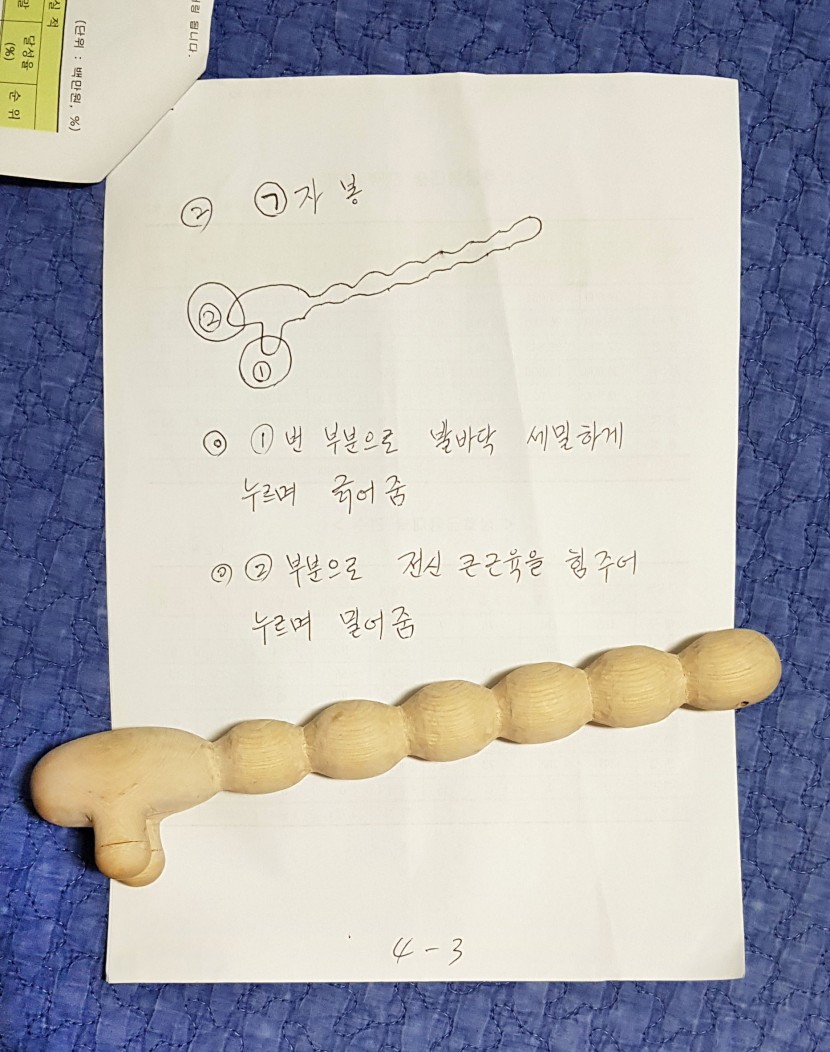 럼 됩니다.
(단위 : 백만원, %)
실 적
달성율
(%)
순 위
② ㉠자 봉
②
①
◎ ①번 부분으로 발바닥 세밀하게
누르며 긁어 줌
◎ ② 부분으로 전신 큰근육을 힘주어
누르며 밀어 줌
4-3